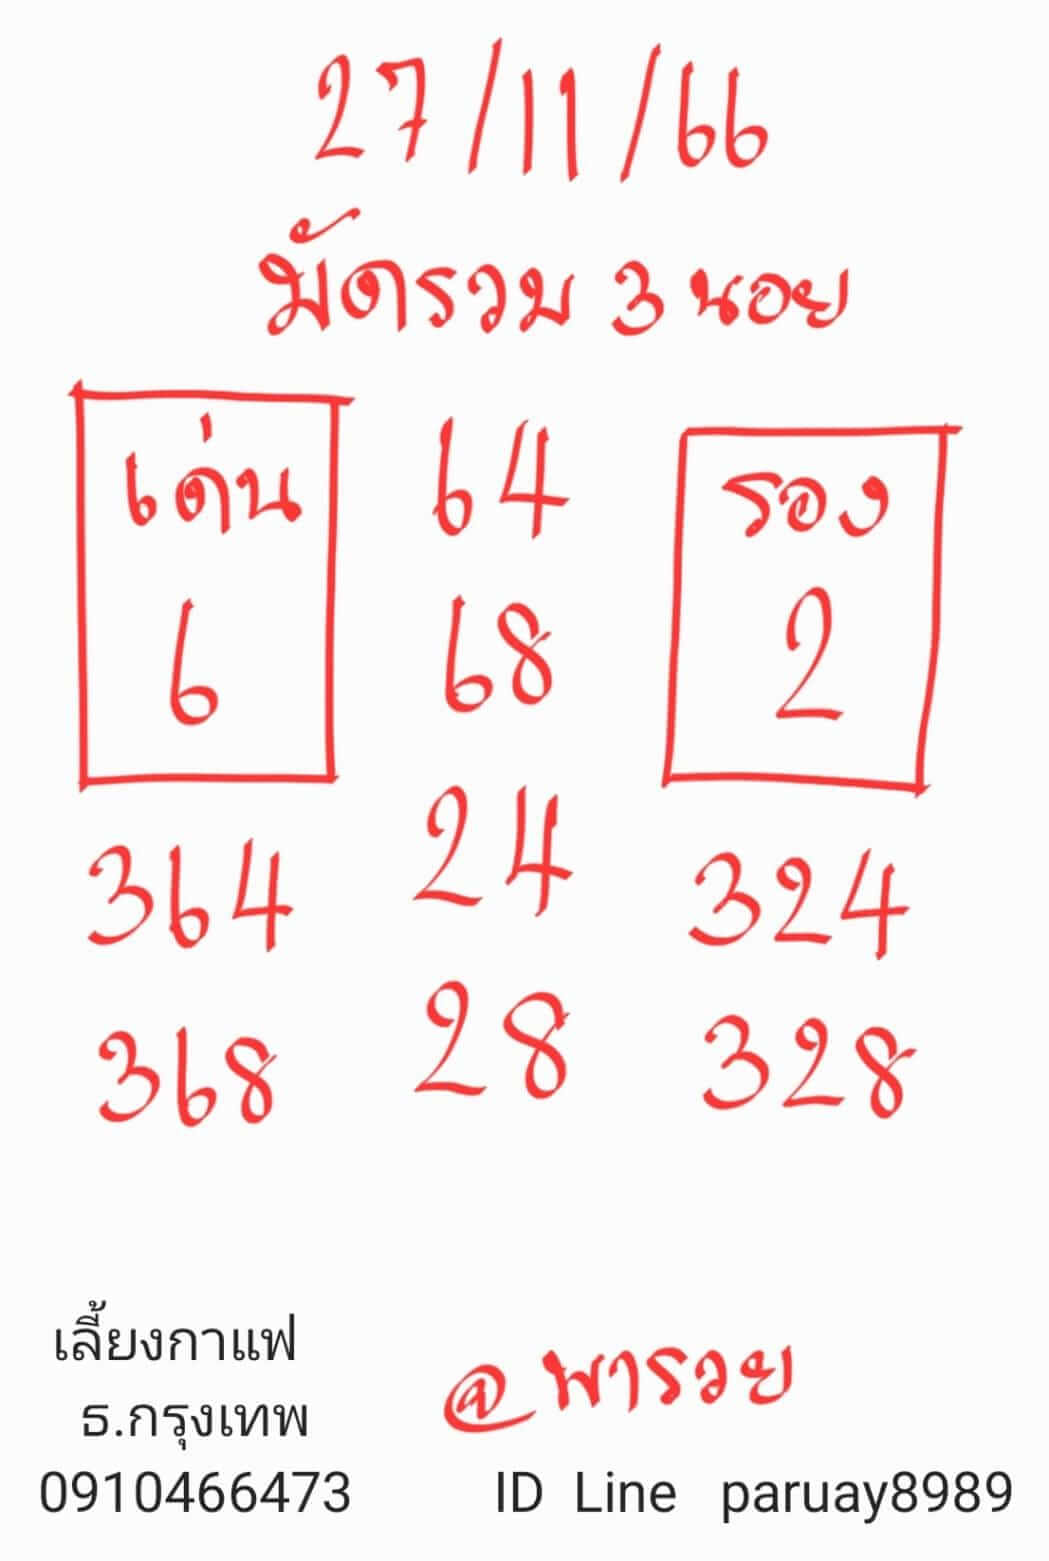 27/11/66
มัดรวม 3 นอย
เด่น 64 รอง
6 68 2
24
364 324
28
368 328
เลี้ยงกาแฟ
@พารวย
ธ.กรุงเทพ
0910466473 ID Line paruay8989